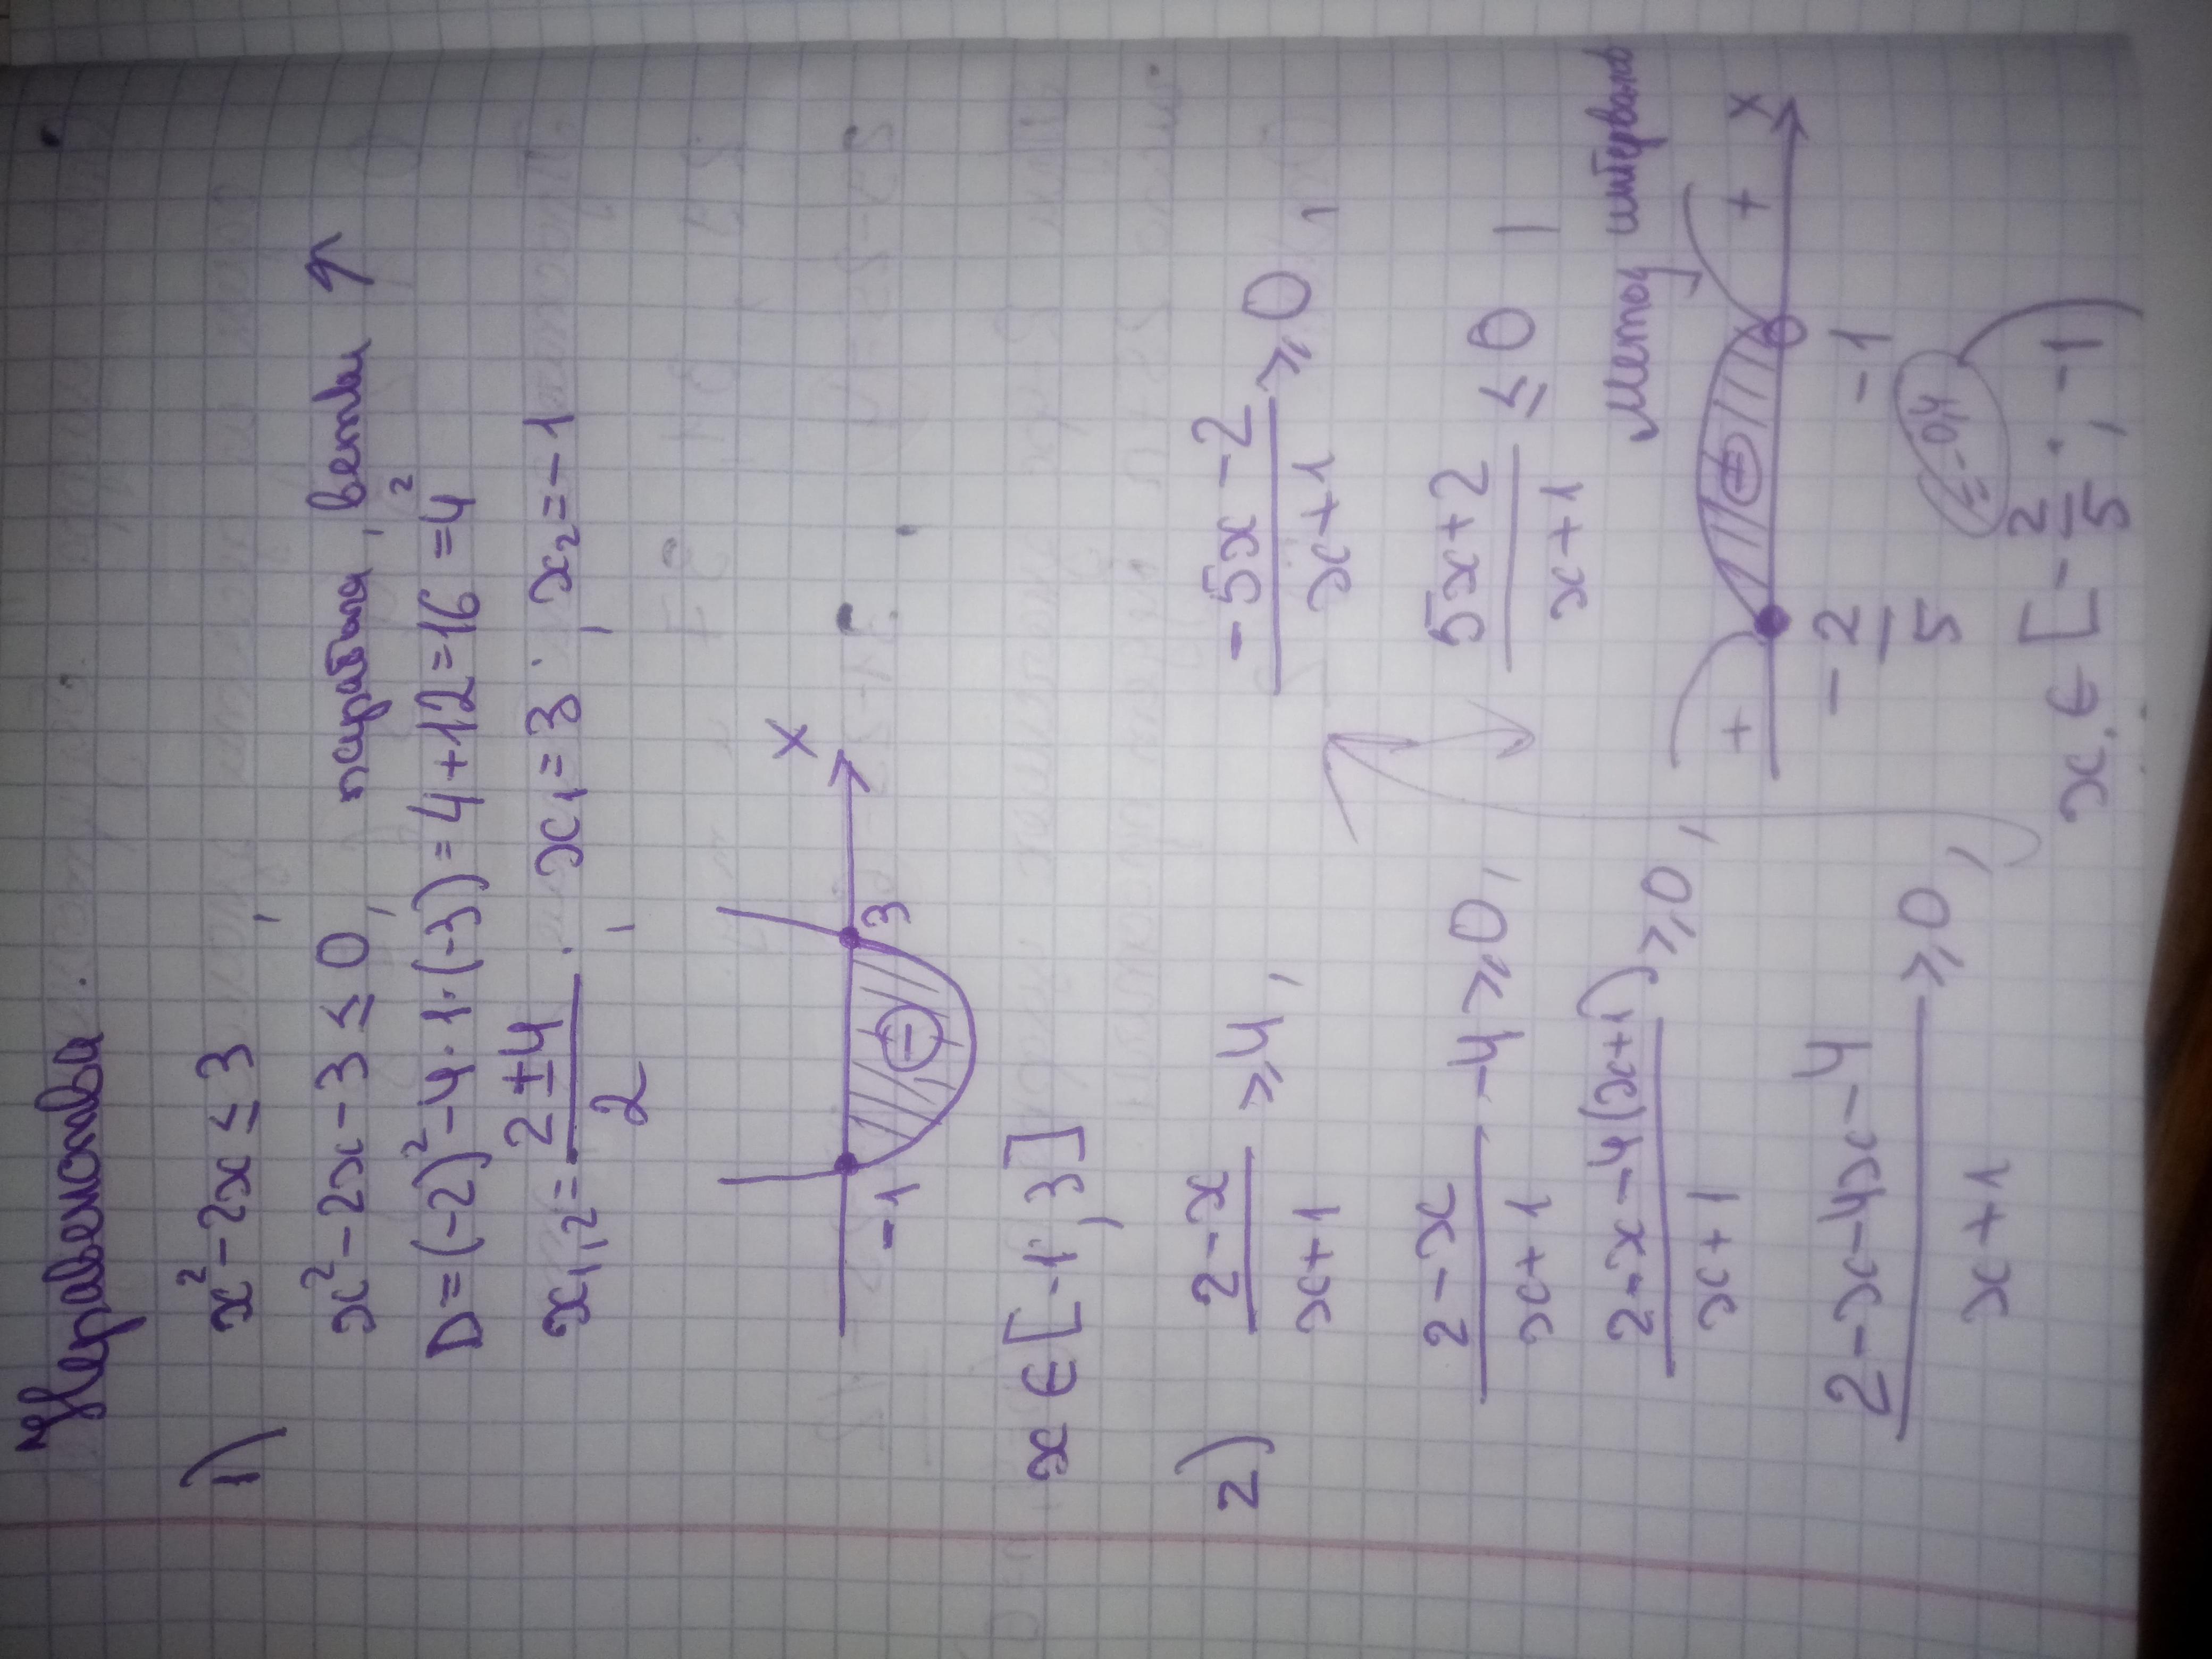 Неравенства
1) x² - 2x ≤ 3,
x² - 2x - 3 ≤ 0, парабола, ветви ↑
D = (-2)² - 4·1·(-3) = 4 + 12 = 16 = 4²
x₁,₂ = (2 ± 4)/2, x₁ = 3, x₂ = -1
x
-1 3
⊖
x ∈ [-1; 3]
2) (2 - x)/(x + 1) ⩾ 4,
(2 - x)/(x + 1) - 4 ⩾ 0,
(2 - x - 4(x + 1))/(x + 1) ⩾ 0,
(2 - x - 4x - 4)/(x + 1) ⩾ 0,
(-5x - 2)/(x + 1) ⩾ 0,
(5x + 2)/(x + 1) ≤ 0
Метод интервалов
+ ⊕ + x
-2/5 -1
= -0,4
x ∈ [-2/5; -1)